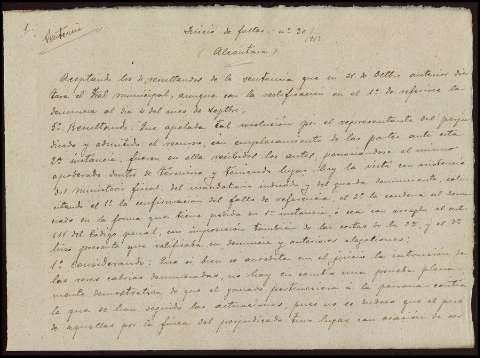 Sentencia
Juicio de faltas. nº 20
(Alcántara)
Aceptando los 4 resultandos de la sentencia que en 31 de Octbre anterior dic
tara el Tral municipal, aunque con la rectificación en el 1º de referirse la
denuncia al día 4 del mes de Septbre.
5º Resultando: Que apelada tal resolución por el representante del perju
dicado y admitido el recurso, con emplazamiento de las partes ante esta
2ª instancia, fueron en ella recibidos los autos, personándose el mismo
apoderado dentro de término y teniendo lugar hoy la vista con asistencia
del Ministerio fiscal, del mandatario indicado y del guarda denunciante, soli
citando el 1º la confirmación del fallo de referencia, el 2º la condena al denun
ciado en la forma que tiene pedida en 1ª instancia, o sea con arreglo al art.
611 del Código penal, con imposición también de las costas de la 2ª, y el 3º
hizo presente que ratificaba su denuncia y anteriores alegaciones;
1º Considerando: Que si bien se acredita en el juicio la intrusión de
las reses cabrías denunciadas, no hay en cambio una prueba plena
mente demostrativa de que el ganado perteneciera a la persona contra
la que se han seguido las actuaciones, pues no se deduce que el paso
de aquellas por la finca del perjudicado tuvo lugar con ocasión de ser